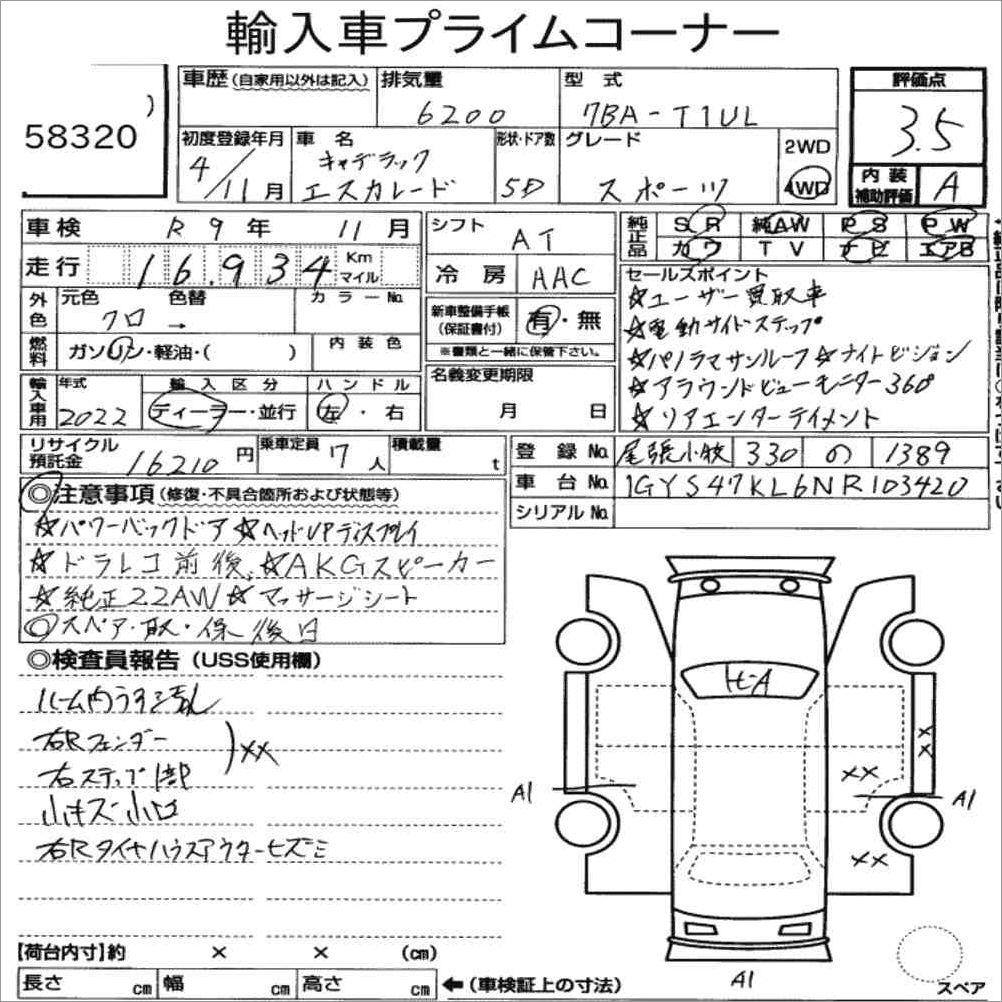 輸入車プライムコーナー
58320
車歴 (自家用以外は記入) 排気量 型式 評価点
6200 7BA-T1UL 3.5
初度登録年月 車名 形状・ドア数 グレード 2WD
4WD
4/11月 キャデラック エスカレード 5D スポーツ
内装補助評価 A
車検 R9年 11月
走行 16,934 Km マイル
シフト AT
冷房 AAC
純正品 SR 純AW PS PW
カワ TV ナビ エアB
外色 元色 色替 カラーNo.
クロ →
燃料 ガソリン・軽油・( ) 内装色
新車整備手帳(保証書付) 有・無
※書類と一緒に保管下さい。
セールスポイント
☆ユーザー買取車
☆電動サイドステップ
☆パノラマサンルーフ☆ナイトビジョン
☆アラウンドビューモニター360°
☆リアエンターテイメント
輸入車用 年式 輸入区分 ハンドル
2022 ディーラー・並行 左・右
名義変更期限
月 日
リサイクル預託金 16210円 乗車定員 7人 積載量 t
登録No. 尾張小牧 330 の 1389
車台No. 1GYS47KL6NR103420
シリアルNo.
◎注意事項 (修復・不具合箇所および状態等)
☆パワーバックドア ☆ヘッドUPディスプレイ
☆ドラレコ前後、☆AKGスピーカー
☆純正22AW☆マッサージシート
◎スペア・取・保後日
◎検査員報告 (USS使用欄)
右Rフェンダー
右ステップ部 XX
小キズ小凹
右Rタイヤハウスアウターヒズミ
ヒ-A
XX
XX
XX
A1
A1
A1
【荷台内寸】約 × × (cm)
長さ cm 幅 cm 高さ cm ←(車検証上の寸法)
スペア